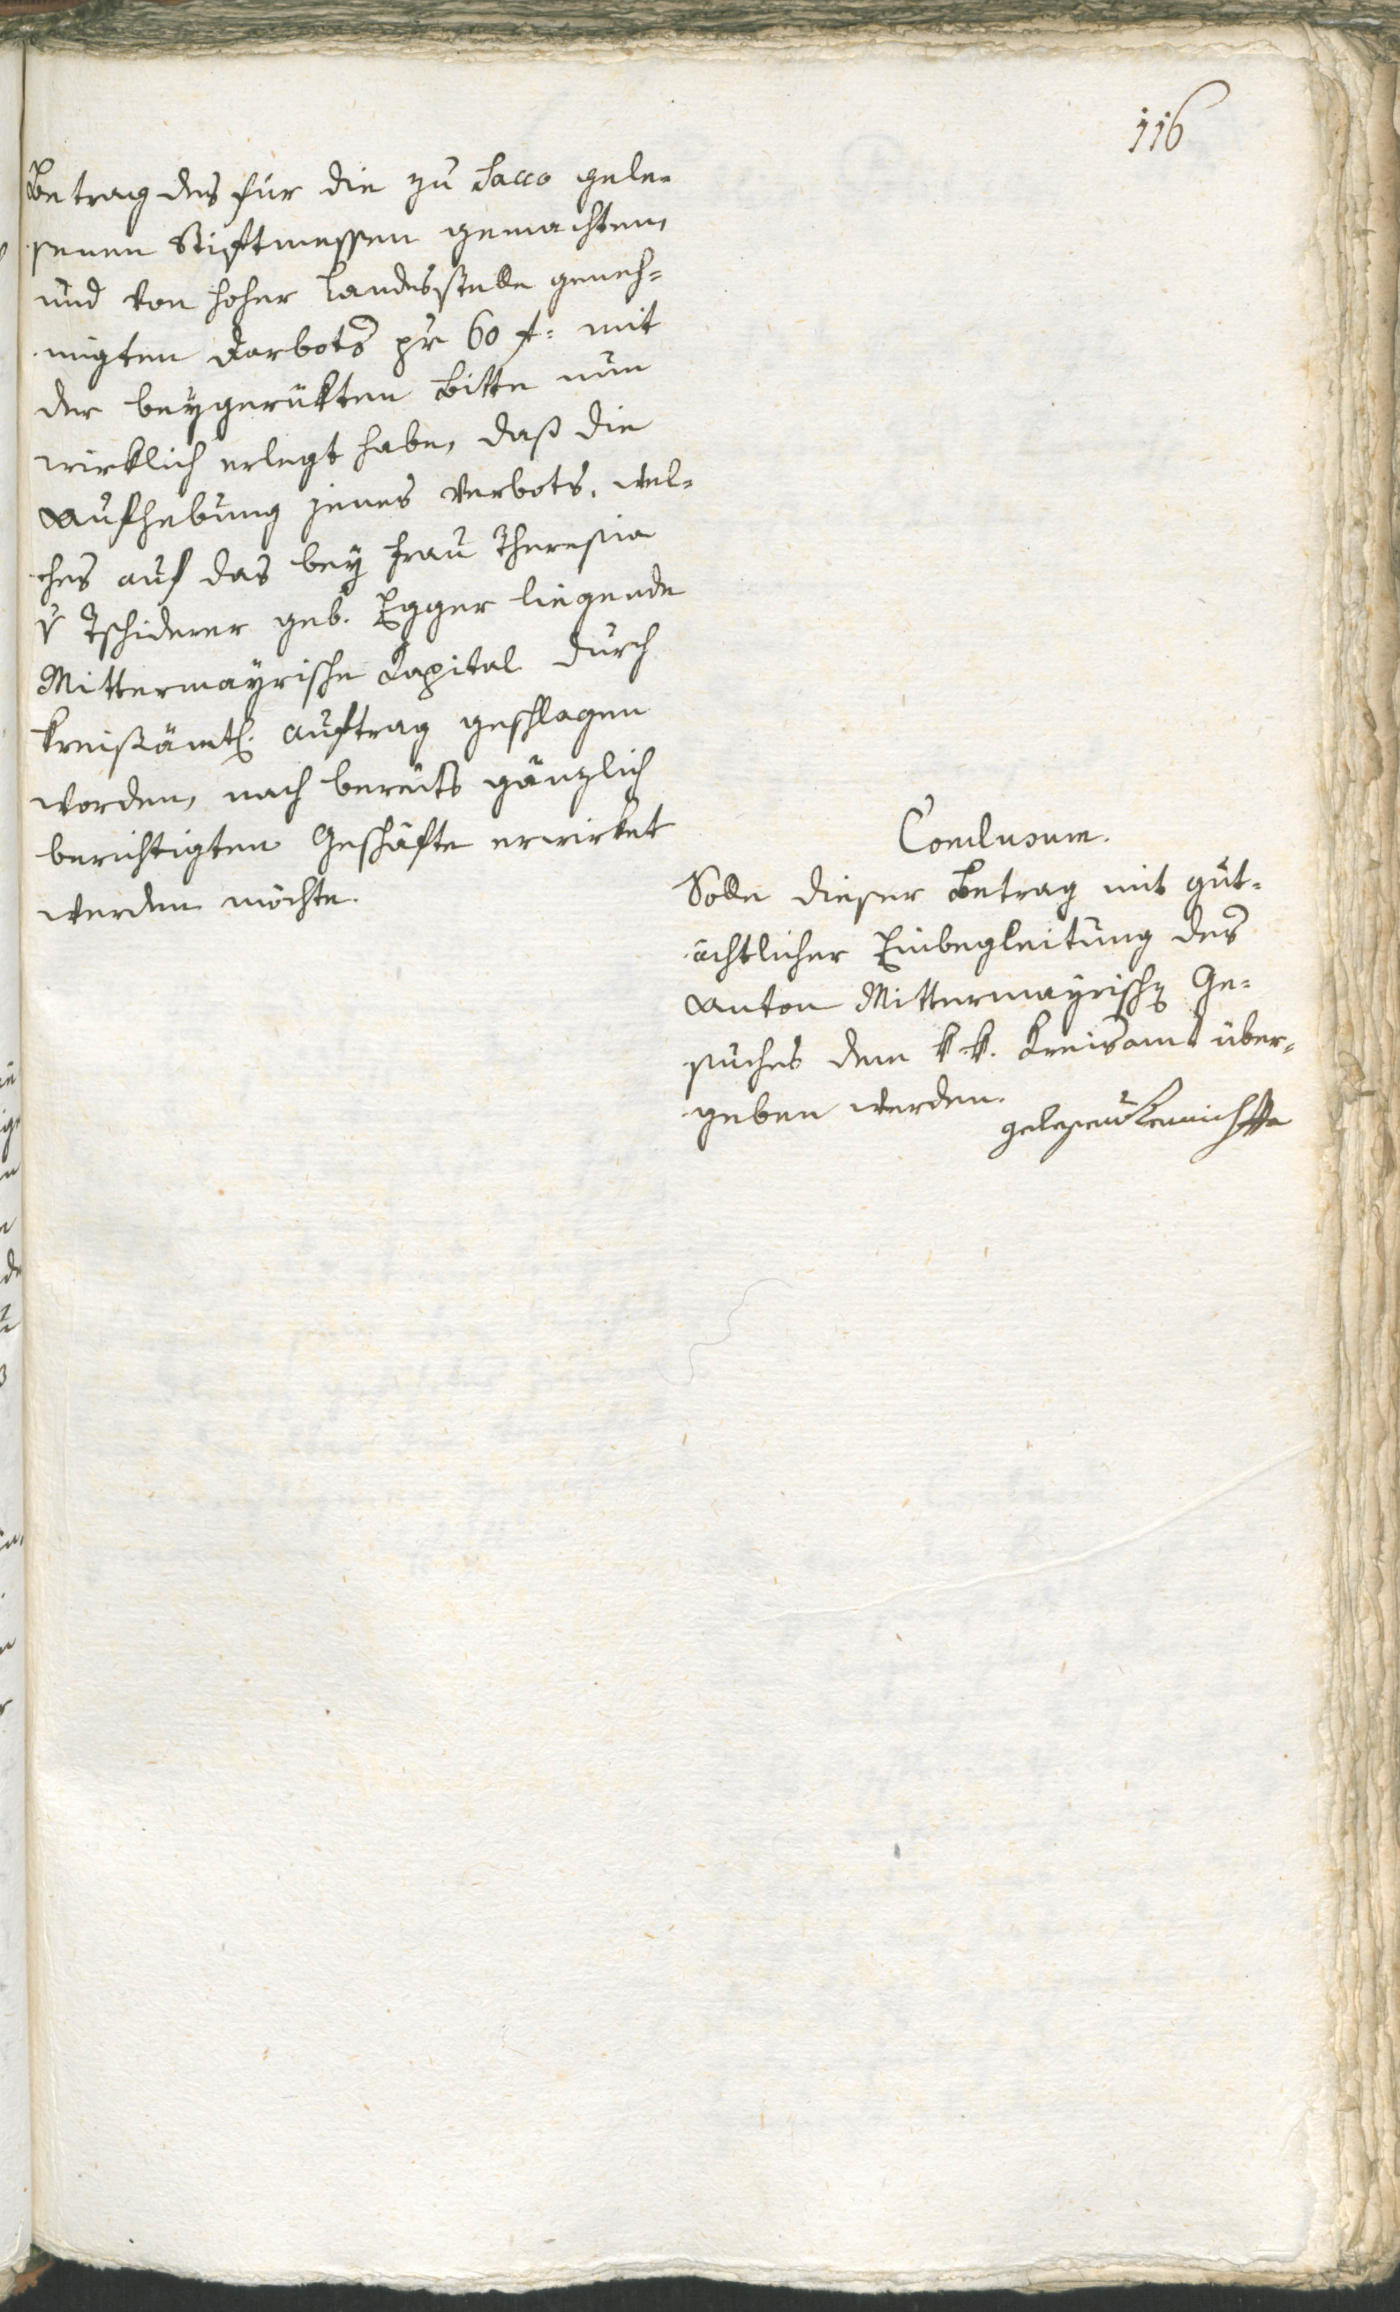 116
Betrag des für die zu Sacco gele-
senen Stiftmessen gemachten,
und von hoher Landesstelle geneh-
migten Darbots pr 60 f: mit
der beygerükten Bitte nun
wirklich erlegt habe, daß die
Aufhebung jenes Verbots, wel-
ches auf das bey Frau Theresia
v Tschiderer geb. Egger liegende
Mittermayrische Kapital durch
kreisämtl. Auftrag geschlagen
worden, nach bereits gänzlich
berichtigten Geschäfte erwirket
werden möchte.
Conclusum.
Solle dieser Betrag mit gut-
ächtlicher Einbegleitung des
Anton Mittermayrischen Ge-
suches dem k. k. Kreisamt über-
geben werden.
gelesen